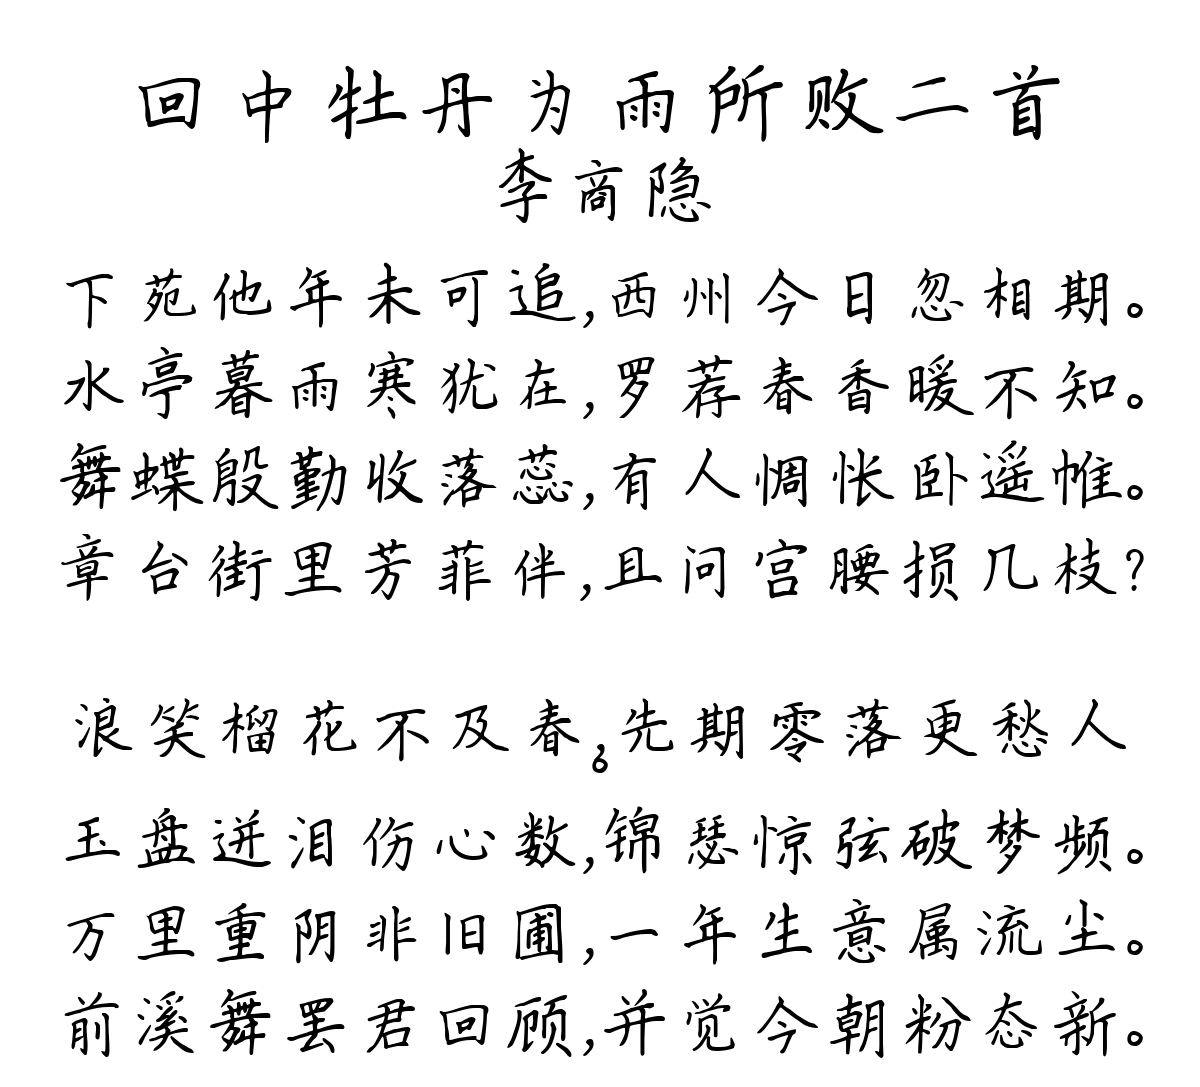 回中牡丹为雨所败二首
李商隐
下苑他年未可追,西州今日忽相期。
水亭暮雨寒犹在,罗荐春香暖不知。
舞蝶殷勤收落蕊,有人惆怅卧遥帷。
章台街里芳菲伴,且问宫腰损几枝?
浪笑榴花不及春,先期零落更愁人
。
玉盘迸泪伤心数,锦瑟惊弦破梦频。
万里重阴非旧圃,一年生意属流尘。
前溪舞罢君回顾,并觉今朝粉态新。